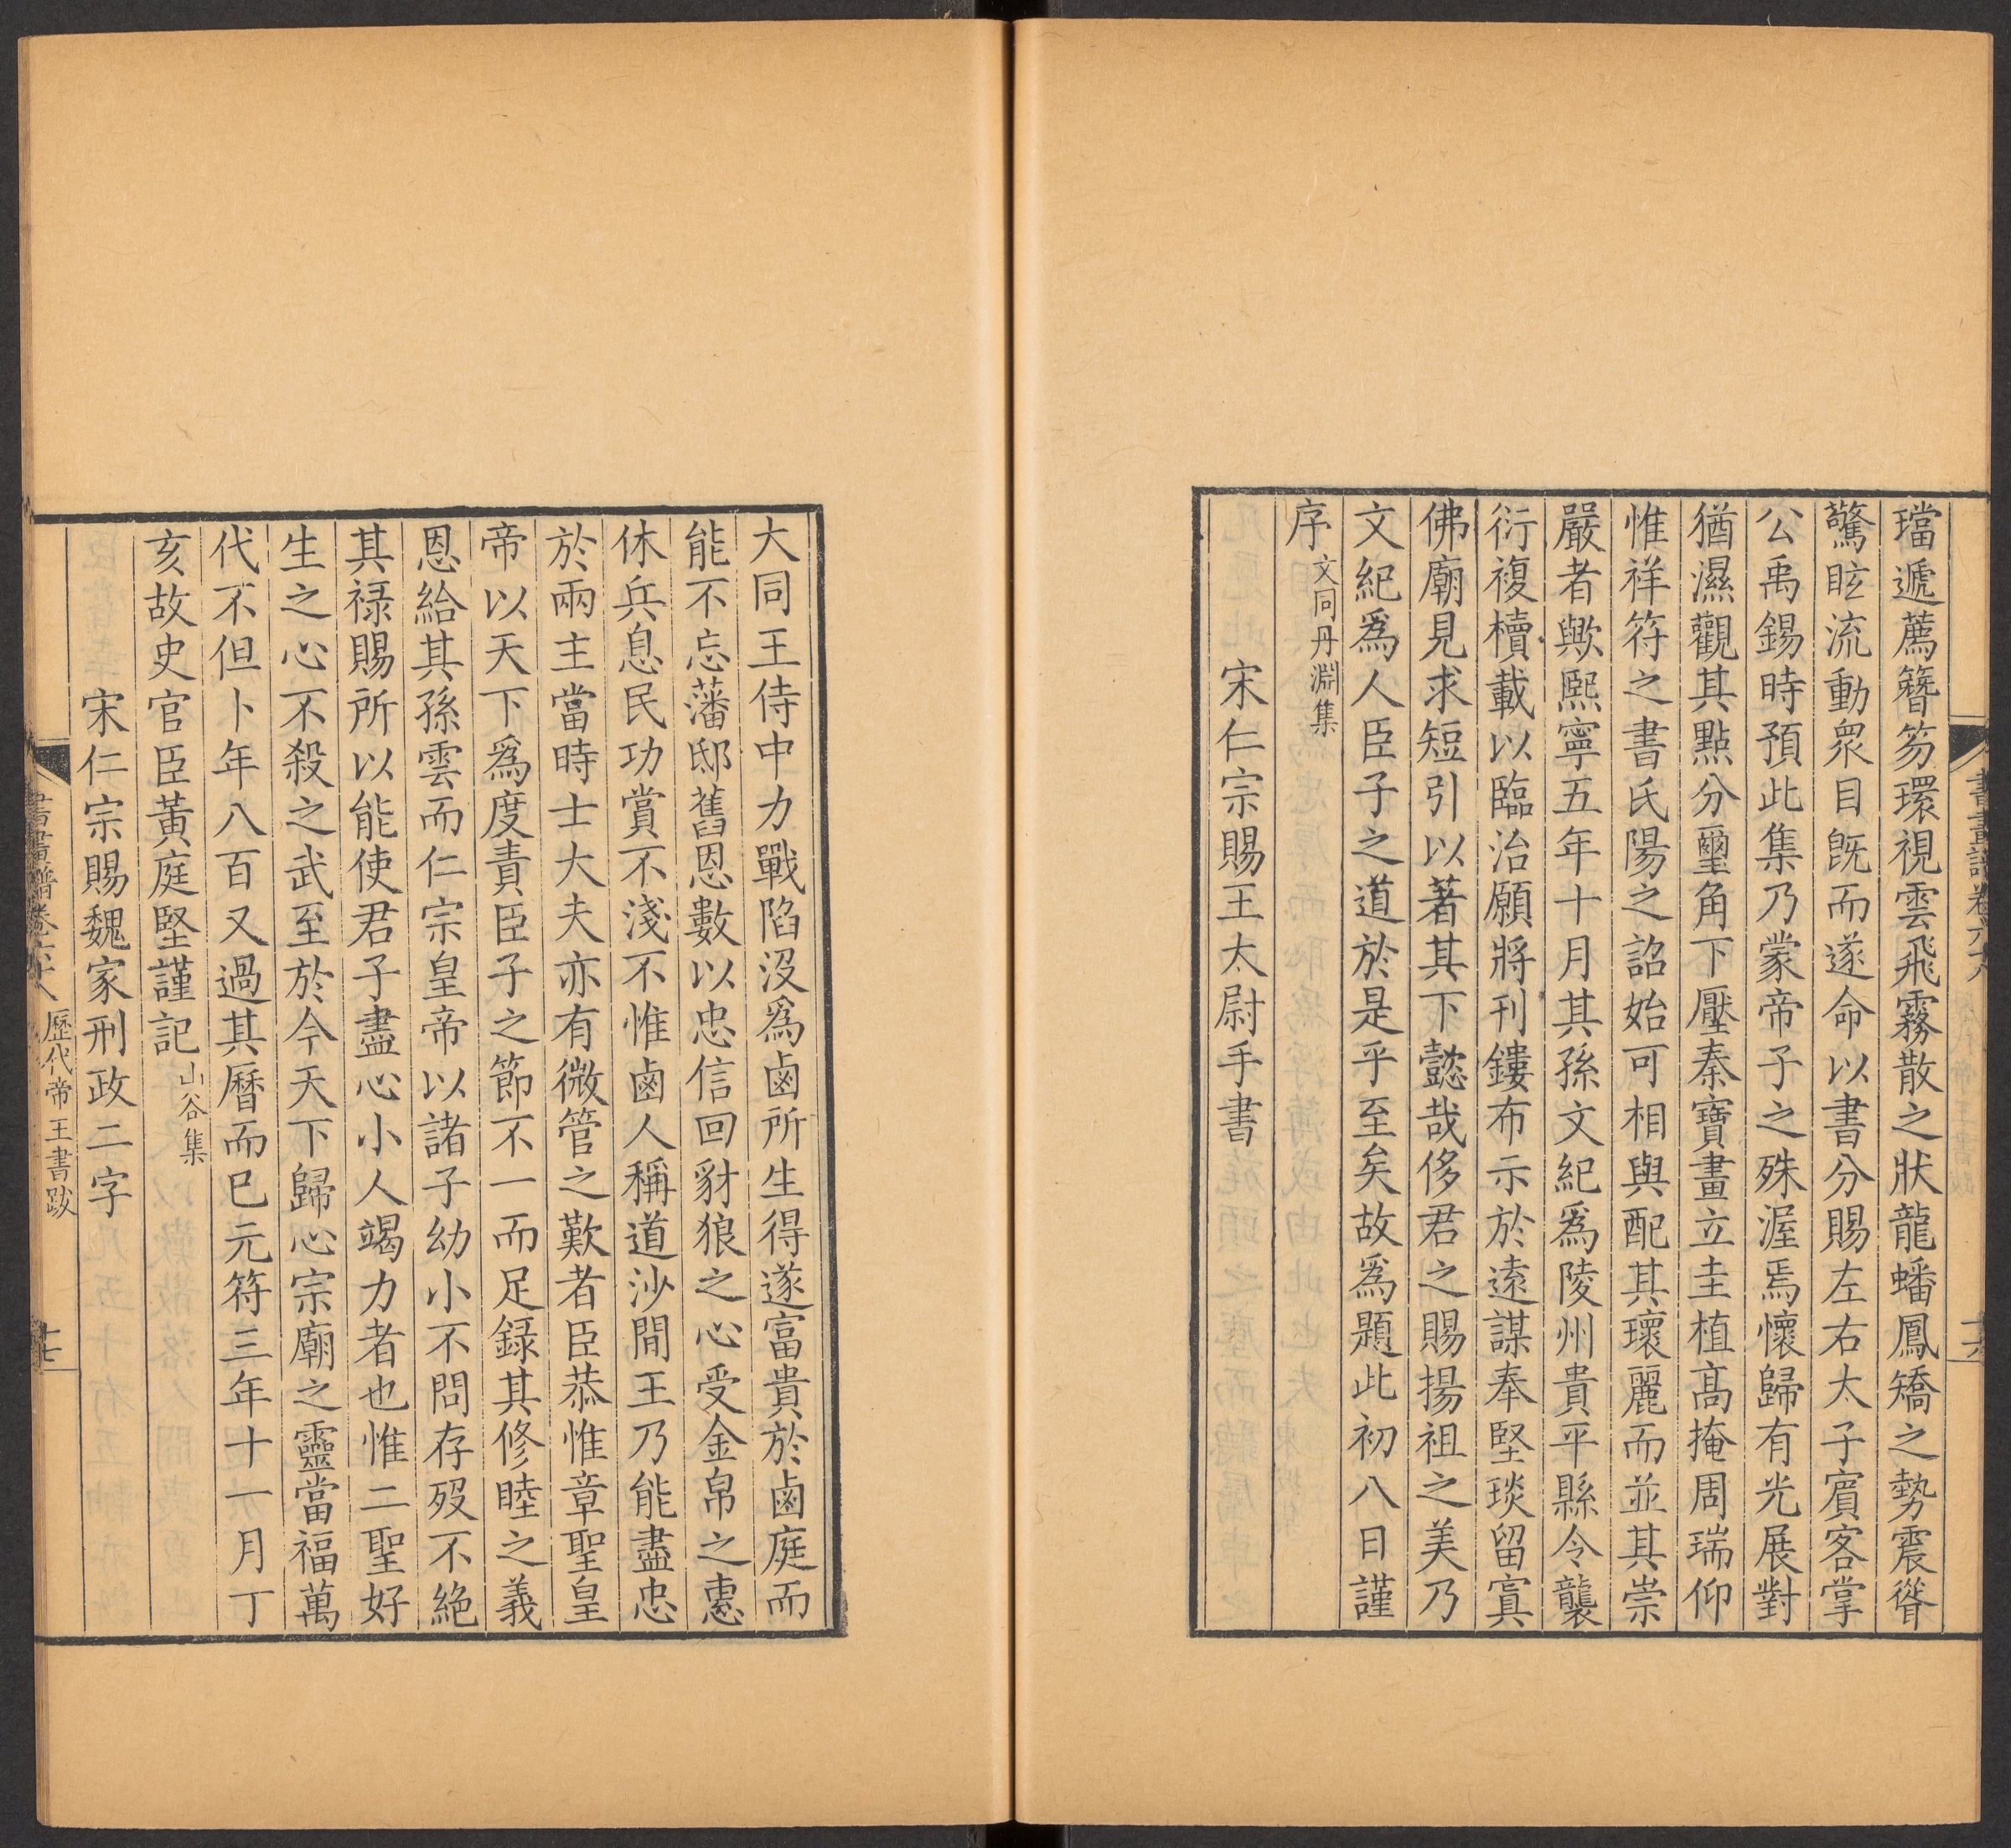 璫遞薦簪笏環視雲飛霧散之狀龍蟠鳳矯之勢震聳
驚眩流動眾目旣而遂命以書分賜左右太子賓客掌
公禹錫時預此集乃蒙帝子之殊渥焉懷歸有光展對
猶濕觀其點分璽角下壓秦寶畫立圭植高掩周瑞仰
惟祥符之書氏陽之詔始可相與配其瓌麗而並其崇
嚴者歟熙寧五年十月其孫文紀爲陵州貴平縣令襲
衍複櫝載以臨治願將刊鏤布示於遠謀奉堅琰留寘
佛廟見求短引以著其下懿哉侈君之賜揚祖之美乃
文紀爲人臣子之道於是乎至矣故爲題此初八日謹
序 文同丹淵集
宋仁宗賜王太尉手書
大同王侍中力戰陷沒爲鹵所生得遂富貴於鹵庭而
能不忘藩邸舊恩數以忠信回豺狼之心受金帛之恵
休兵息民功賞不淺不惟鹵人稱道沙間王乃能盡忠
於兩主當時士大夫亦有微管之歎者臣恭惟章聖皇
帝以天下爲度責臣子之節不一而足録其修睦之義
恩給其孫雲而仁宗皇帝以諸子幼小不問存歿不絶
其禄賜所以能使君子盡心小人竭力者也惟二聖好
生之心不殺之武至於今天下歸心宗廟之靈當福萬
代不但卜年八百又過其曆而已元符三年十一月丁
亥故史官臣黃庭堅謹記 山谷集
宋仁宗賜魏家刑政二字
書畫譜卷六十八 歷代帝王書跋 十七